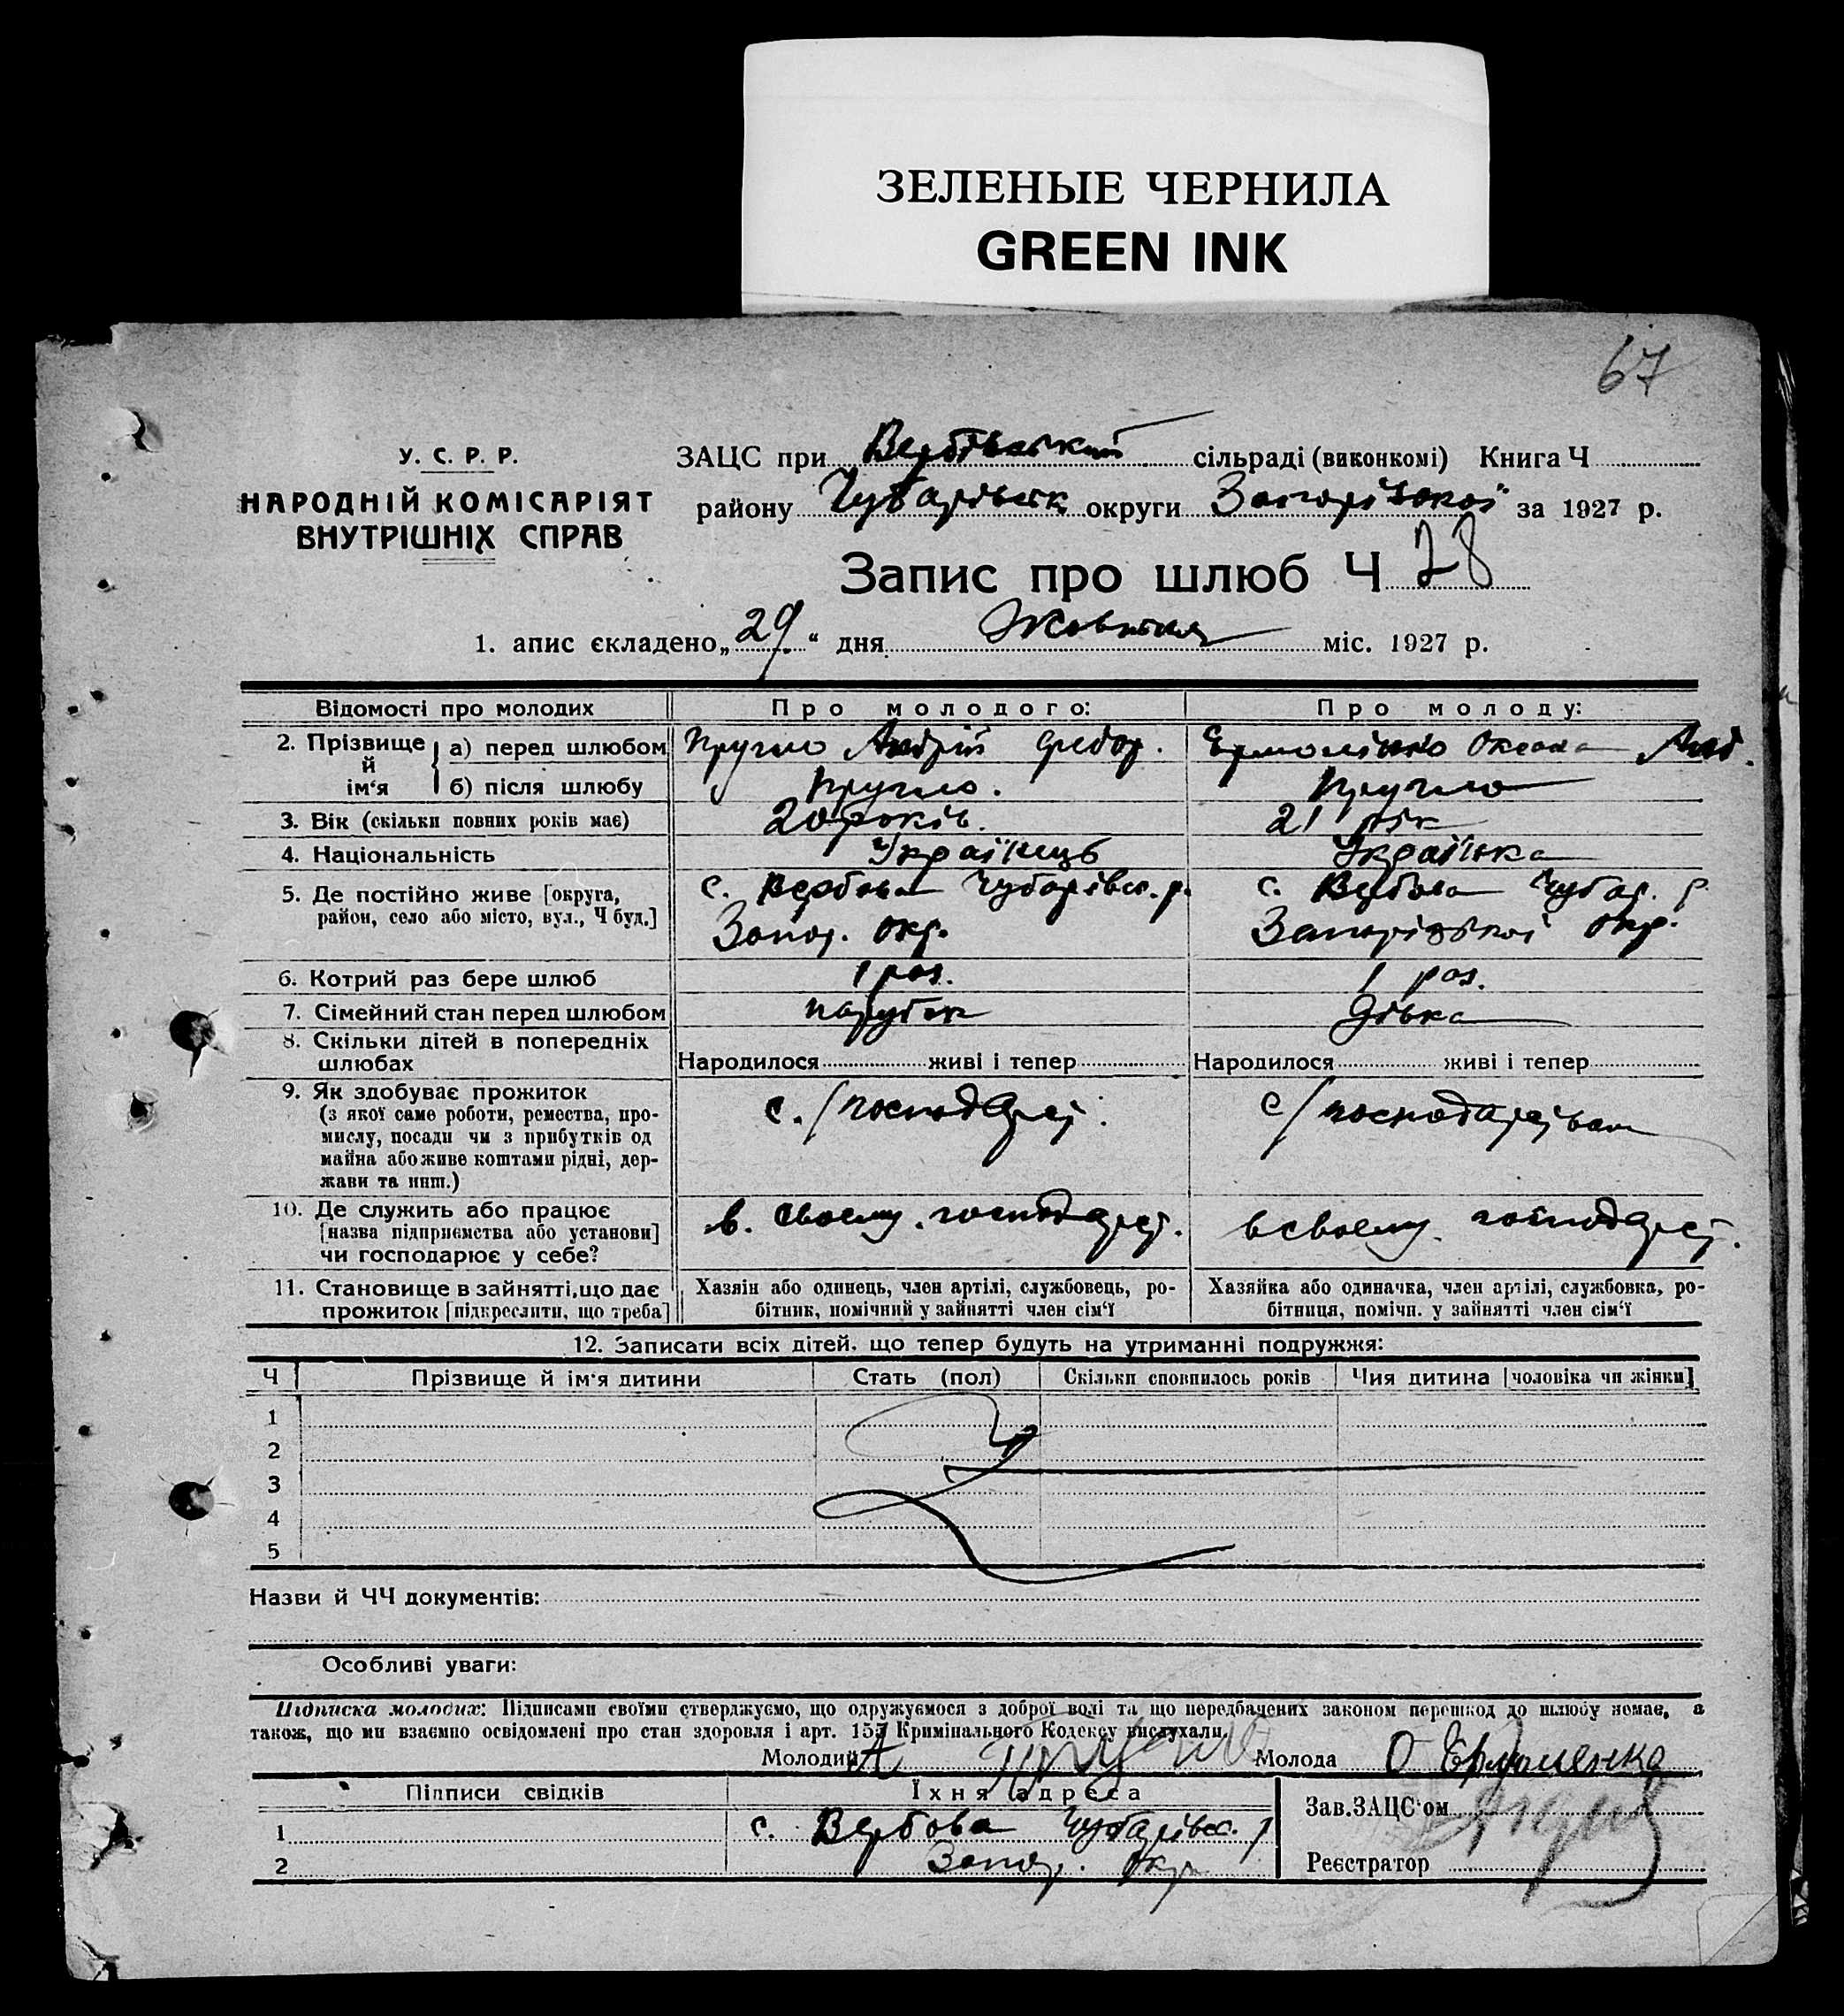 ЗЕЛЕНЫЕ ЧЕРНИЛА
GREEN INK
67
У. С. Р. Р.
НАРОДНІЙ КОМІСАРІЯТ
ВНУТРІШНІХ СПРАВ
ЗАЦС при Вербівській сільраді (виконкомі) Книга Ч
району Чубарівськ округи Запорізької за 1927 р.
Запис про шлюб Ч 28
1. апис єкладено „29“ дня Жовтня міс. 1927 р.
Відомості про молодих Про молодого: Про молоду:
2. Прізвище й ім‘я а) перед шлюбом Кругло Андрій Федор. Ермолінко Оксана Анд.
б) після шлюбу Кругло. Кругло
3. Вік (скільки повних років має) 20 років. 21 рік
4. Національність Українець Українка
5. Де постійно живе [округа, с. Вербова Чубарівсь. р. с. Вербова Чубар. р.
район, село або місто, вул., Ч буд.] Запор. окр. Запорізької окр.
6. Котрий раз бере шлюб 1 раз. 1 раз.
7. Сімейний стан перед шлюбом парубок дівка
8. Скільки дітей в попередніх
шлюбах Народилося живі і тепер Народилося живі і тепер
9. Як здобуває прожиток
(з якої саме роботи, ремества, про-
мислу, посади чи з прибутків од
майна або живе коштами рідні, дер-
жави та инш.)
с./господарст. с/господарства
10. Де служить або працює
[назва підприємства або установи]
чи господарює у себе?
в. своєму. господарст. в своєму. господарст.
11. Становище в зайнятті, що дає Хазяін або одинець, член артілі, службовець, ро- Хазяйка або одиначка, член артілі, службовка, ро-
прожиток [підкреслити, що треба] бітник, помічний у зайнятті член сім‘ї бітниця, помічн. у зайнятті член сім‘ї
12. Записати всіх дітей, що тепер будуть на утриманні подружжя:
Ч Прізвище й ім‘я дитини Стать (пол) Скільки сповнилось років Чия дитина [чоловіка чи жінки]
1
2
3
4
5
Назви й ЧЧ документів:
Особливі уваги:
Підписка молодих: Підписами своїми стверджуємо, що одружуємося з доброї волі та що передбачених законом перешкод до шлюбу немає, а
також, що ми взаємно освідомлені про стан здоровля і арт. 155 Кримінального Кодексу вислухали.
Молодий А Кругло Молода О Ермоленко
Підписи свідків Їхня адреса
Зав. ЗАЦС‘ом
1 с. Вербова Чубарівсь. р
2 Запор. окр
Реєстратор